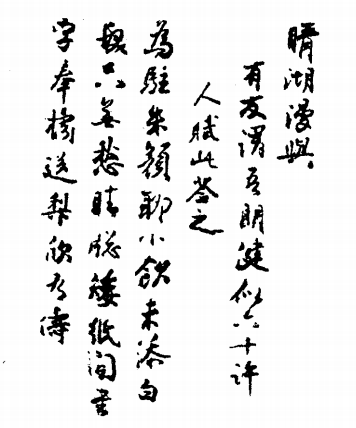 晴湖漫興。
有友謂吾朙健似六十许
人賦此答之
為駐朱顏聊小飲未添白
髮只無愁晴牕矮紙閒書
字奉橘送梨欣有儔